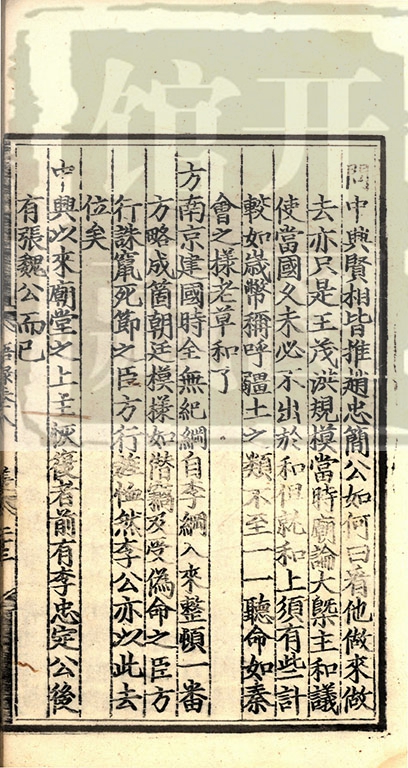 問中興賢相皆推趙忠簡公如何曰看他做來做
去亦只是王茂洪規模當時廟論大槩主和議
使當國久未必不出於和但就和上須有些計
較如歲幣稱呼疆土之類不至一一聽命如秦
會之樣老草和了
方南京建國時全無紀綱自李綱入來整頓一番
方略成箇朝廷模樣如僭竊及受偽命之臣方
行誅竄死節之臣方行褒恤然李公亦以此去
位矣
中興以來廟堂之上主恢復者前有李忠定公後
有張魏公而已
語錄卷八